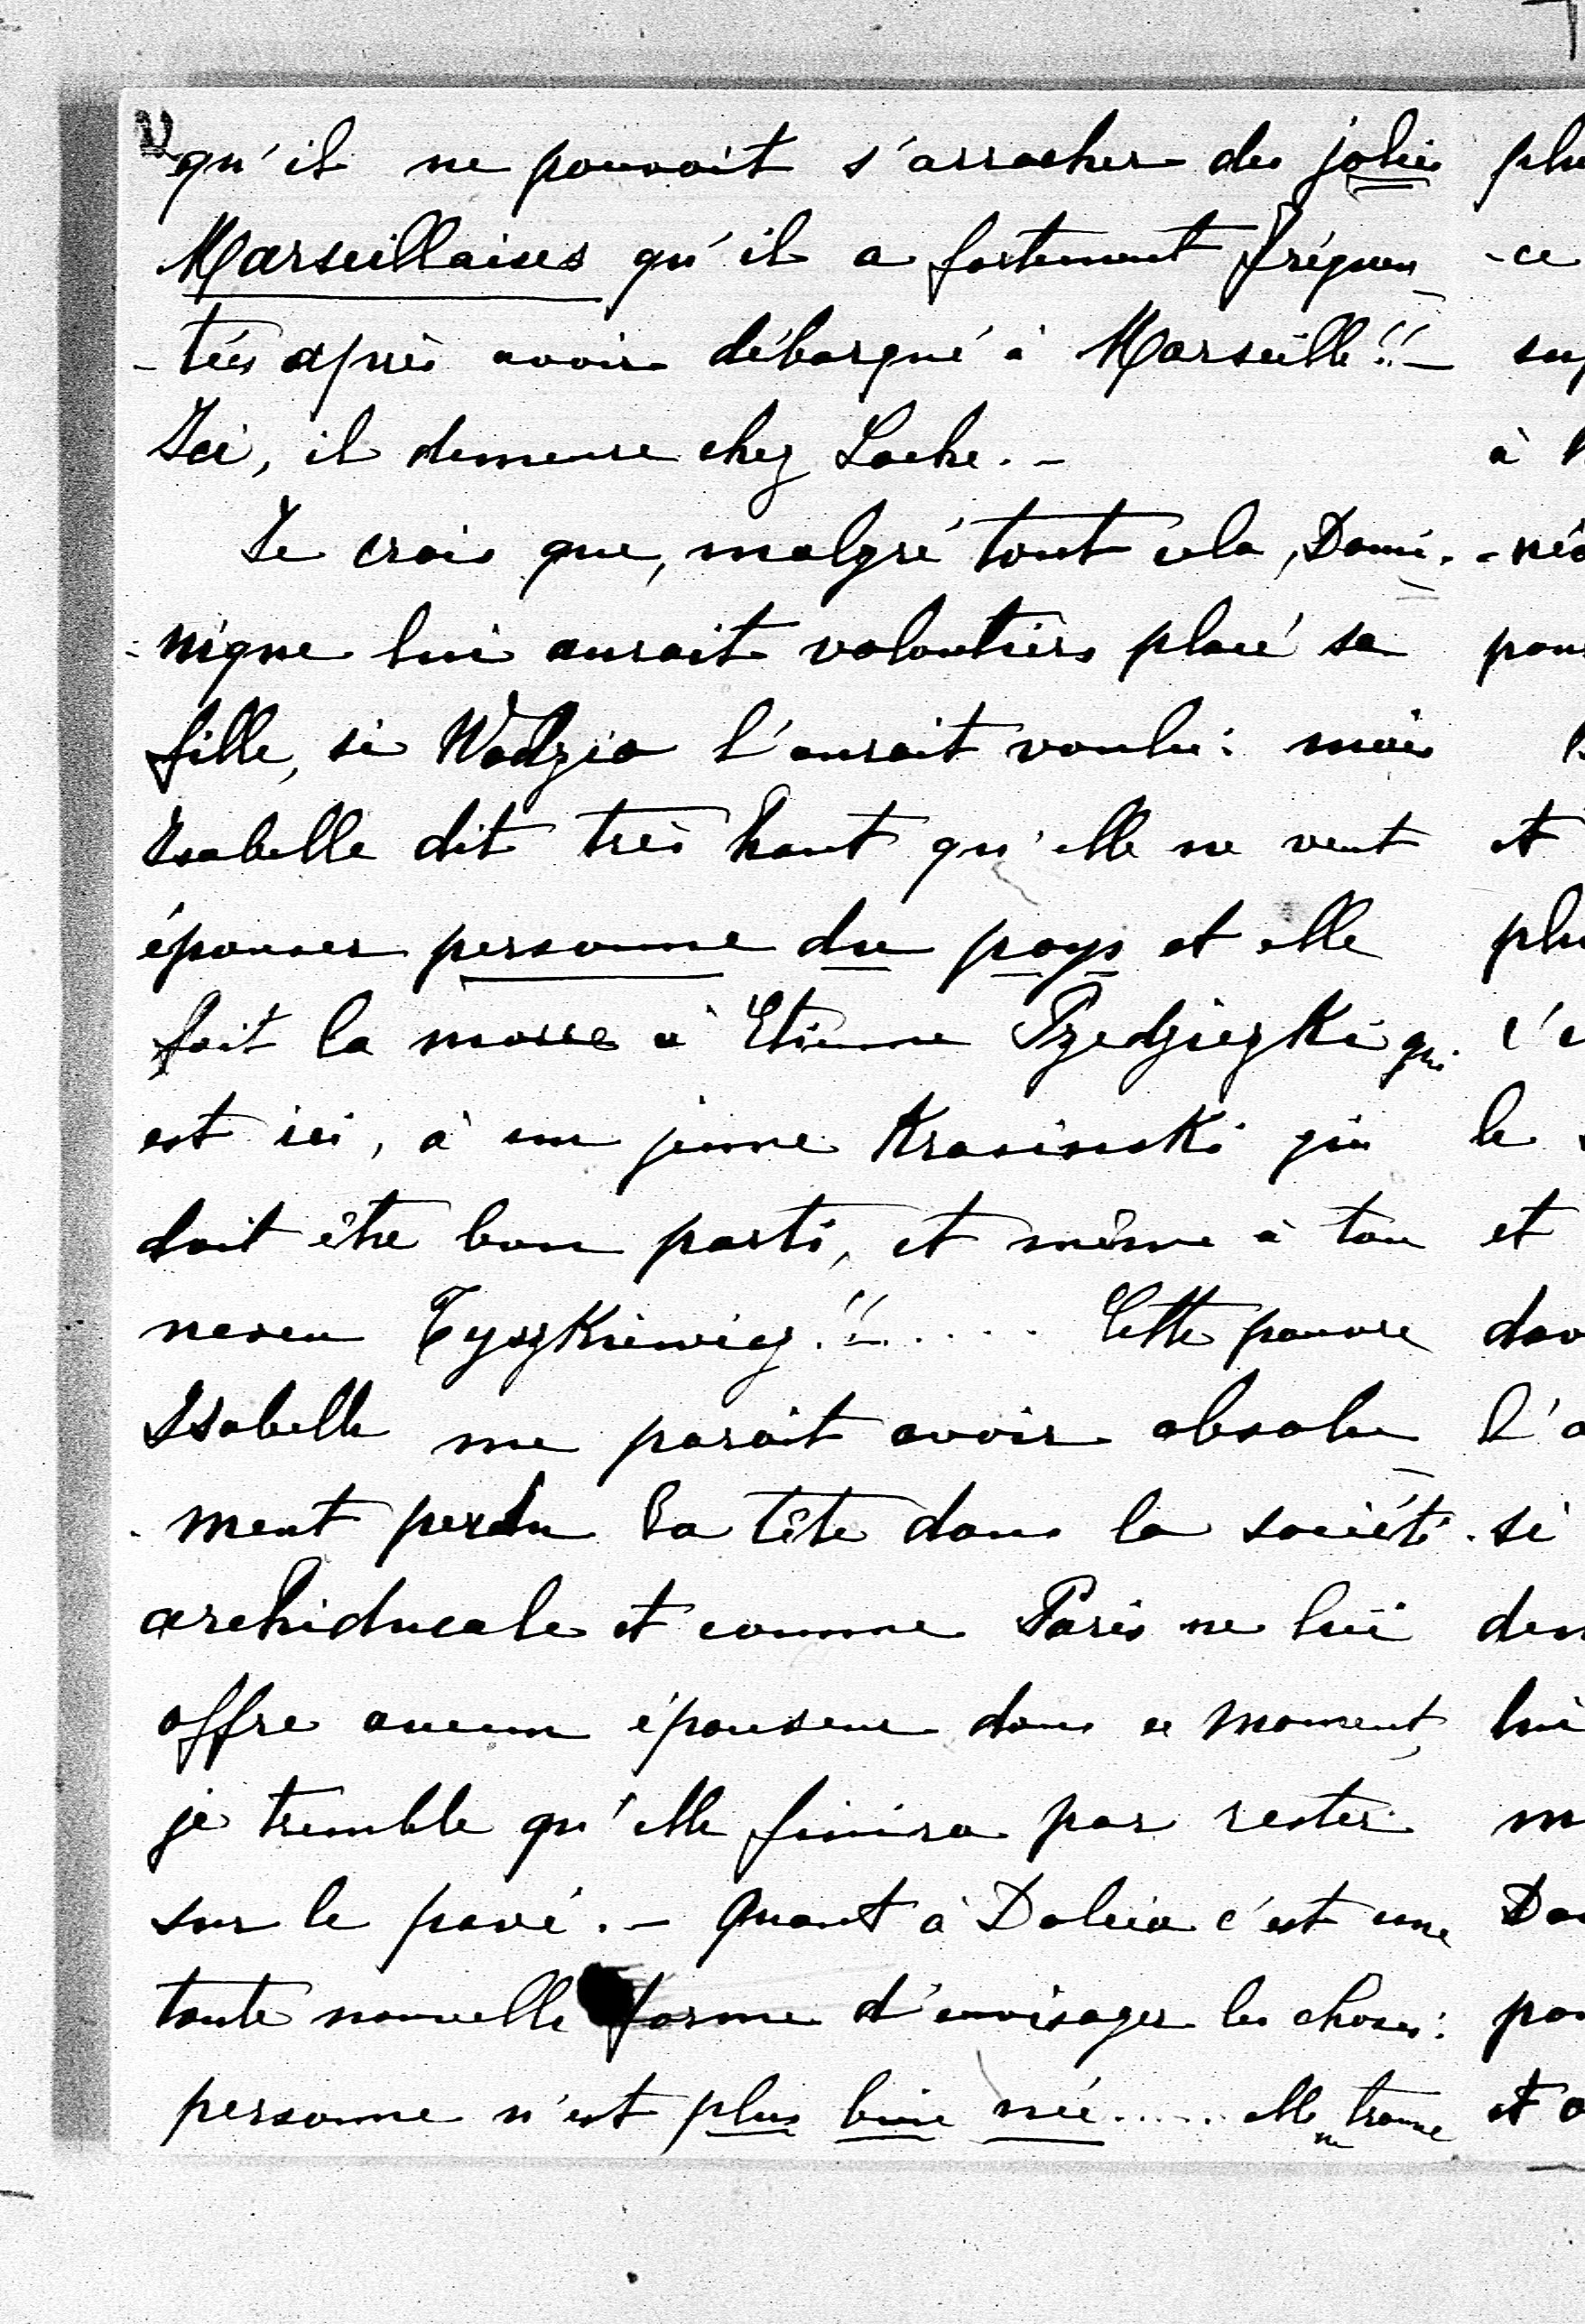 qu'il ne pouvait s'arracher des jolies
Marseillaises qu'il a fortement fréquen-
-tées après avoir débarqué à Marseille!! -
Ici, il demeure chez Loche. -
Je crois que, malgré tout cela, Domi-
-nique lui aurait volontiers placé sa
fille, si Wodzio l'aurait voulu: mais
Isabelle dit très haut qu'elle ne veut
épouser personne du pays et elle
fait la moue à Etienne Pzedziezki qui
est ici, à un jeune Krasinski qui
doit être bon parti, et même à ton
neveu Tyszkiewicz!! .... Cette pauvre
Isabelle me parait avoir absolu-
-ment perdu la tête dans la société
archiducale et comme Paris ne lui
offre aucun épouseur dans ce moment,
je tremble qu'elle finira par rester
sur le pavé. - Quant à c'est une
toute nouvelle forme d'envisager les choses:
personne n'est plus bien née..... elle ne trouve
plu
-ce
sup
à l
pour
et
plu
c'e
le
et
l'a
si
lui
m
et